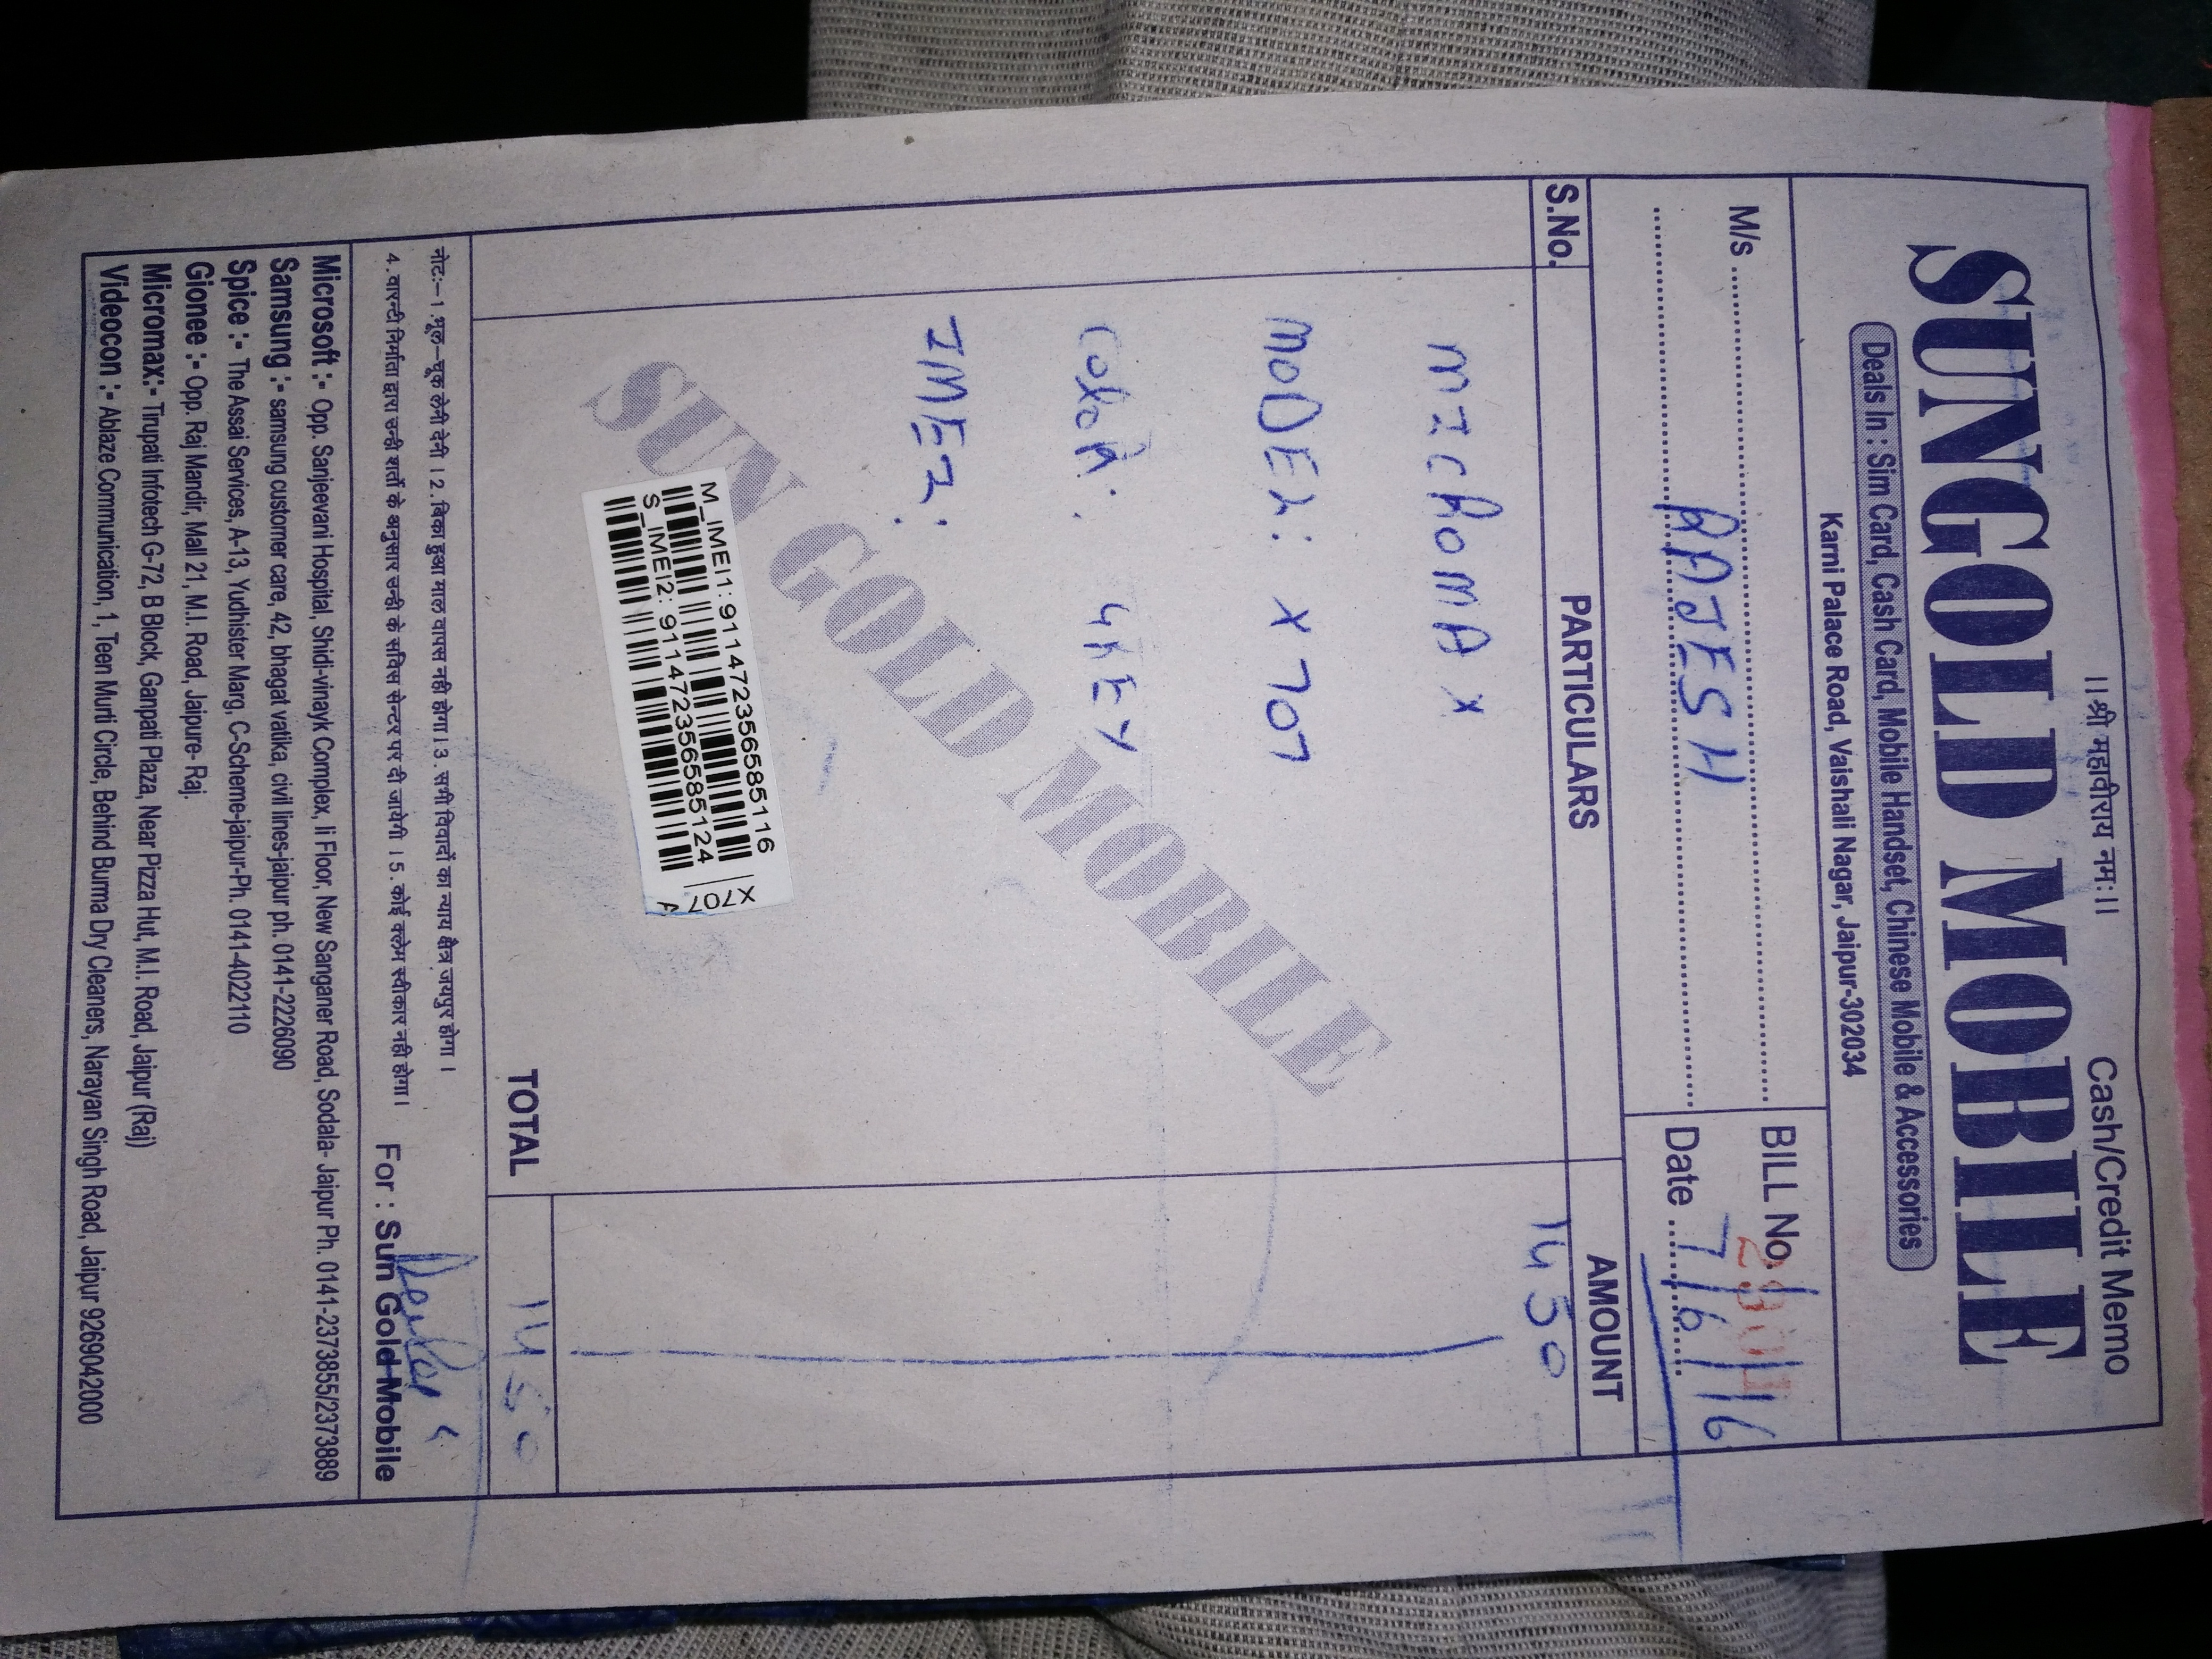 ।।श्री महावीराय नमः।। Cash/Credit Memo
SUNGOLD MOBILE
Deals In : Sim Card, Cash Card, Mobile Handset, Chinese Mobile & Accessories
Karni Palace Road, Vaishali Nagar, Jaipur-302034
M/s
RAJESH
BILL No.
Date 7/6/16
S.No. PARTICULARS AMOUNT
1450
MICROMAX
MODEL: X707
COLOR: GREY
IMEI:
SUN GOLD MOBILE
M_IMEI1: 911472356585116
S_IMEI2: 911472356585124
X707
TOTAL 1450
नोटः–1.भूल–चूक लेनी देनी । 2. बिका हुआ माल वापस नही होगा। 3. सभी विवादों का न्याय क्षैत्र जयपुर होगा ।
4. वारन्टी निर्माता द्वारा उन्ही शर्तो के अनुसार उन्ही के सविस सेन्टर पर दी जायेगी । 5. कोई क्लेम स्वीकार नही होगा।
For : Sun Gold Mobile
Microsoft :- Opp. Sanjeevani Hospital, Shidi-vinayk Complex, Ii Floor, New Sanganer Road, Sodala- Jaipur Ph. 0141-2373855/2373889
Samsung :- samsung customer care, 42, bhagat vatika, civil lines-jaipur ph. 0141-2226090
Spice :- The Assai Services, A-13, Yudhister Marg, C-Scheme-jaipur-Ph. 0141-4022110
Gionee :- Opp. Raj Mandir, Mall 21, M.I. Road, Jaipure- Raj.
Micromax:- Tirupati Infotech G-72, B Block, Ganpati Plaza, Near Pizza Hut, M.I. Road, Jaipur (Raj)
Videocon :- Ablaze Communication, 1, Teen Murti Circle, Behind Burma Dry Cleaners, Narayan Singh Road, Jaipur 9269042000